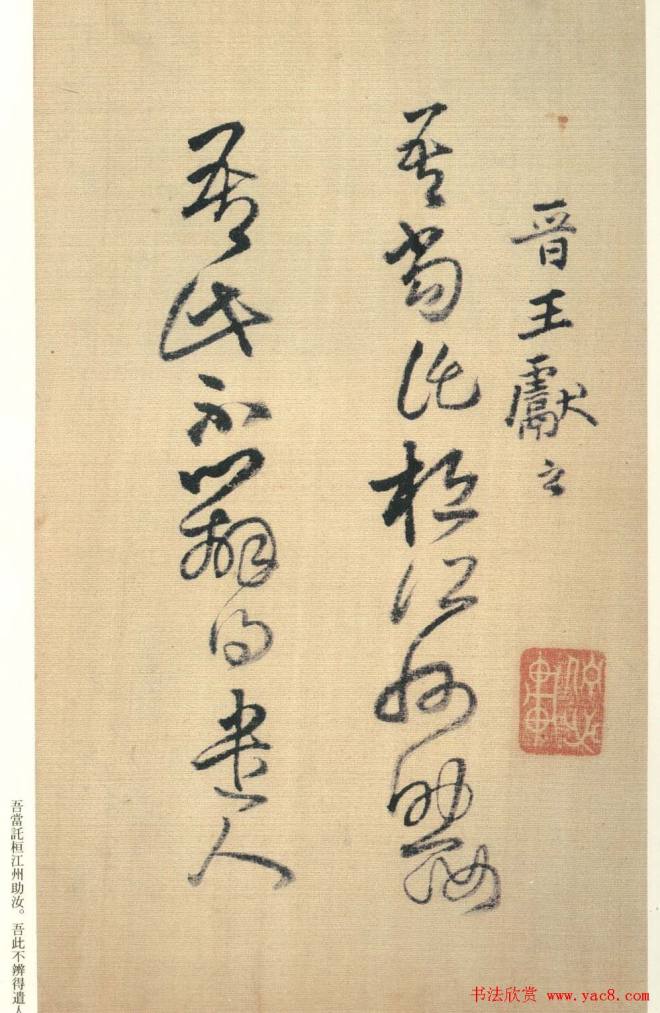 晋王獻之
吾當託桓江州助汝
吾此不辨得遣人
吾當託桓江州助汝。吾此不辨得遣人
书法欣赏 www.yac8.com